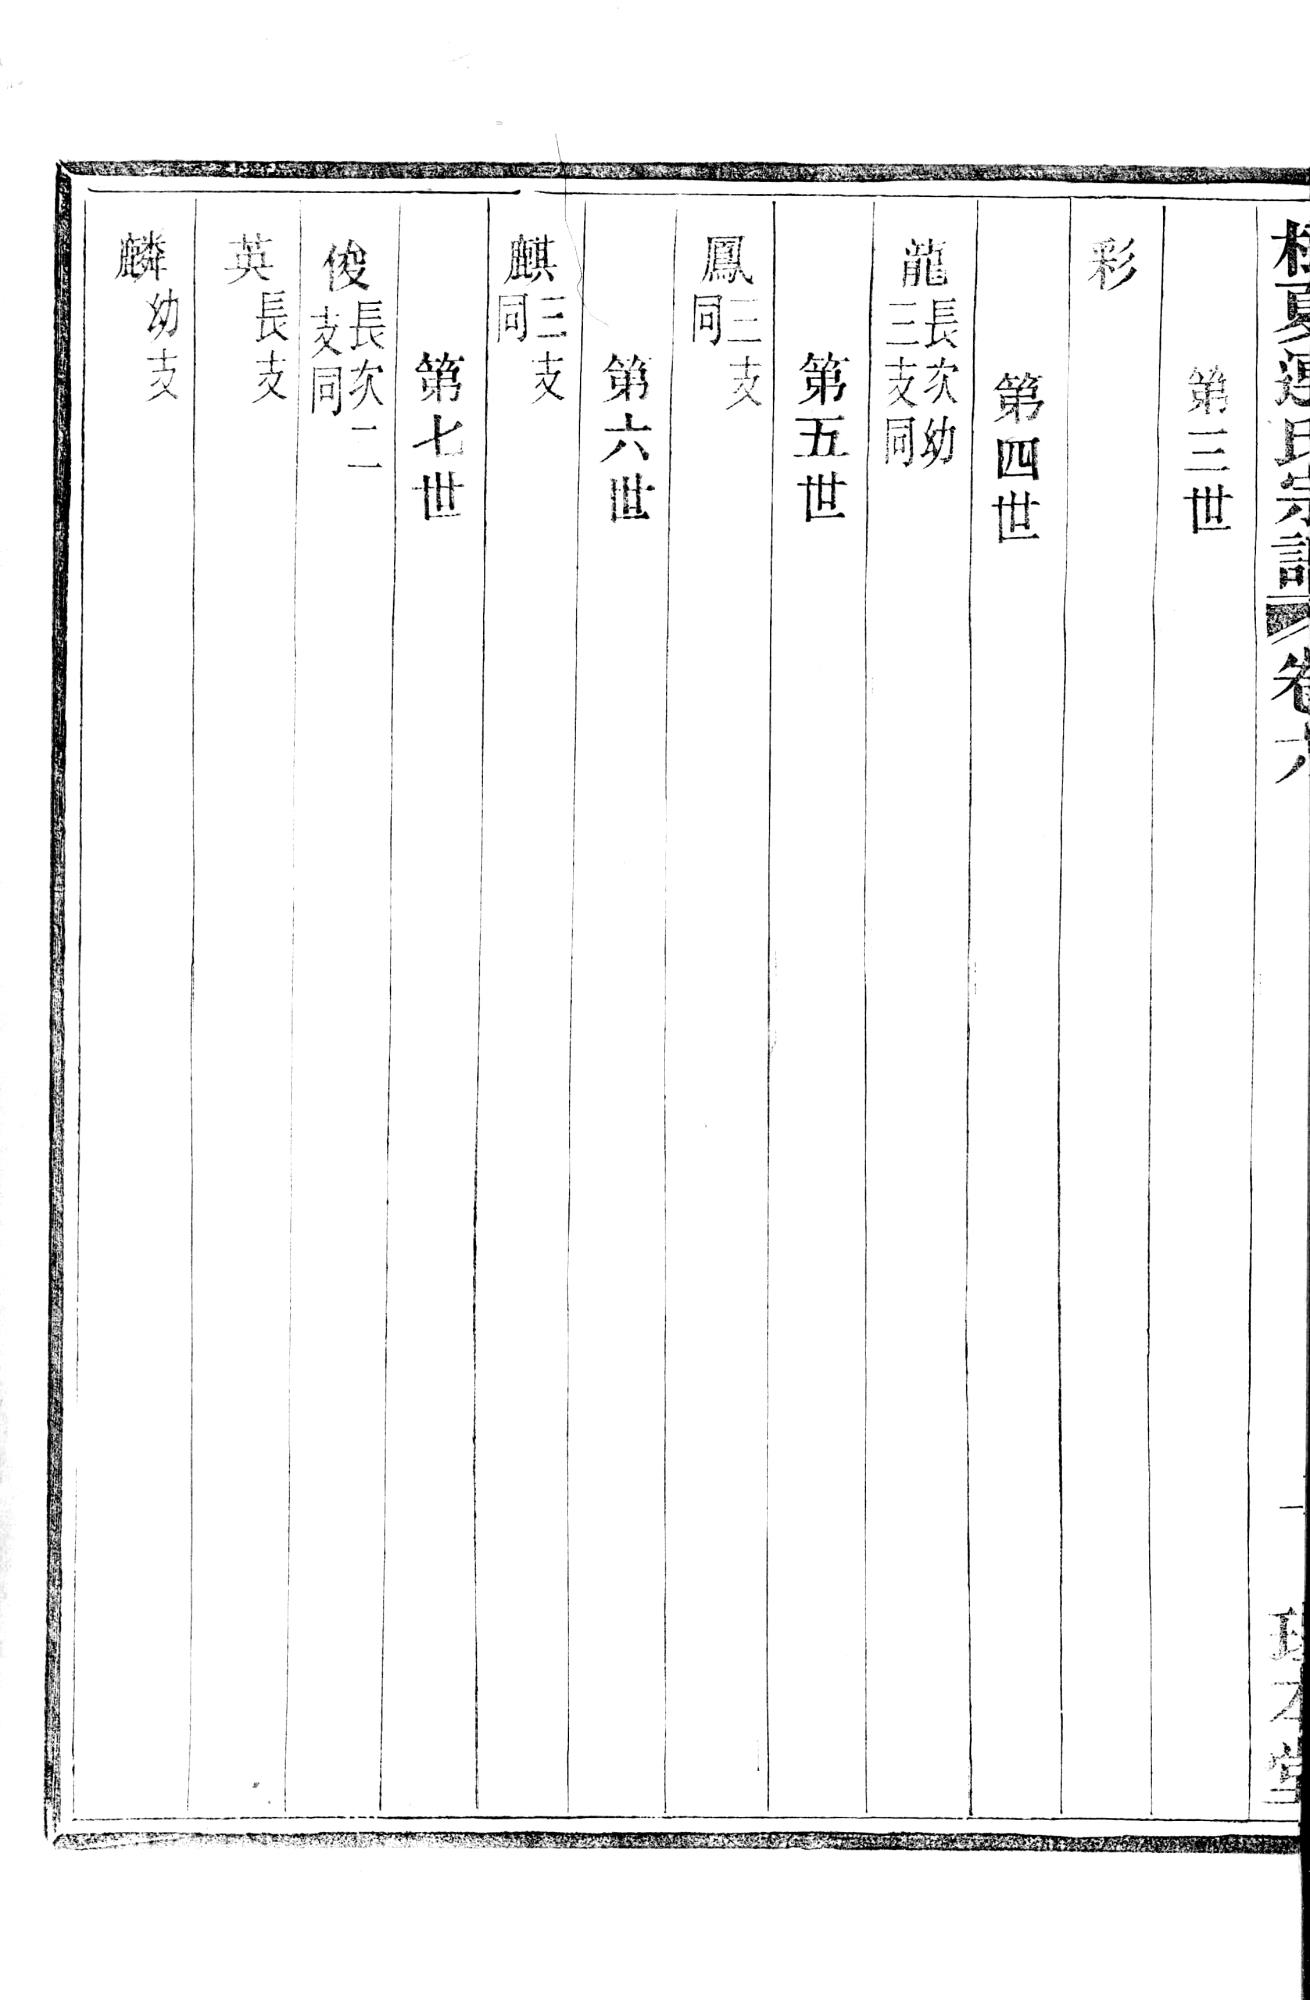 氏宗譜 卷六
一
堂
第三世
彩
第四世
龍 長次幼三支同
第五世
鳳 三支同
第六世
麒 三支同
第七世
俊 長次二支同
英 長支
麟 幼支